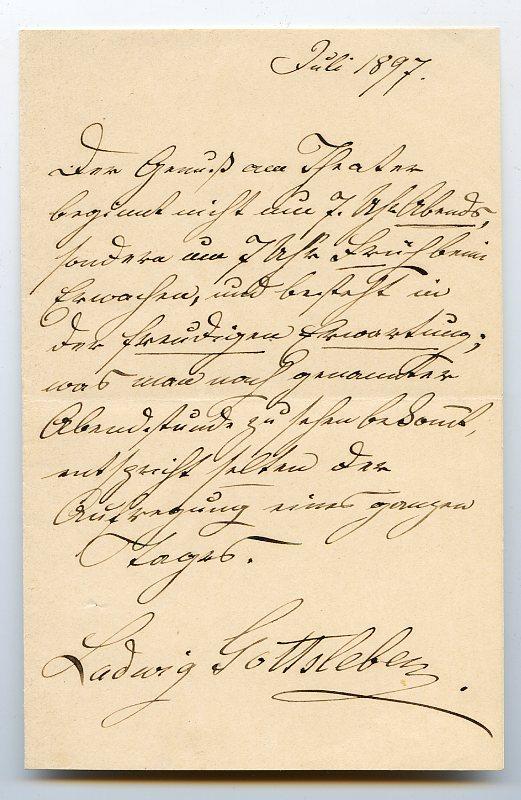 Juli 1897.
Der Genuß am Theater
beginnt nicht um 7. Uhr Abends,
sondern um 7 Uhr Früh beim
Erwachen, und besteht in
der freudigen Erwartung;
was man nach genannter
Abendstunde zu sehen bekomt,
entspricht selten der
Aufregung eines ganzen
Tages.
Ludwig Gottsleben.